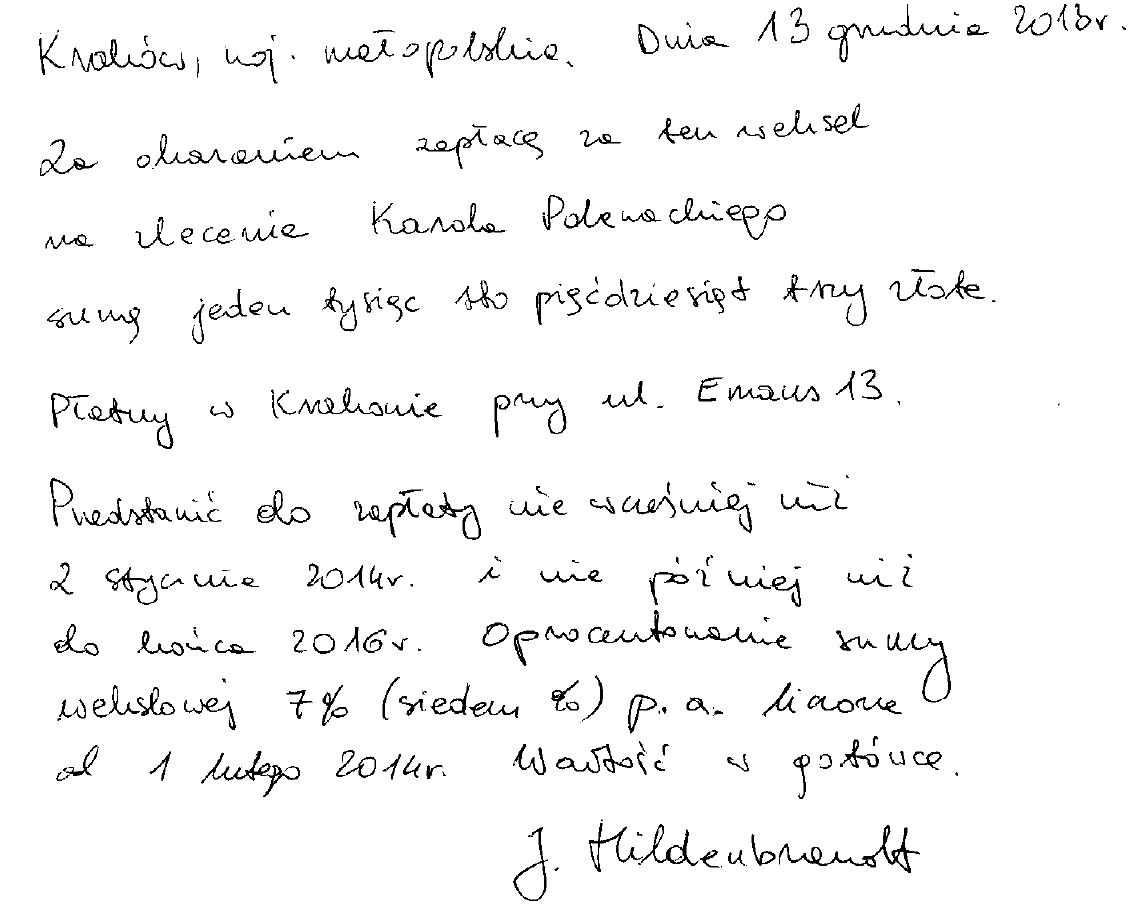 Kraków, woj. małopolskie. Dnia 13 grudnia 2013r.
Za okazaniem zapłacę za ten weksel
na zlecenie Karola Polewackiego
sumę jeden tysiąc sto pięćdziesiąt trzy złote.
Płatny w Krakowie przy ul. Emaus 13.
Przedstawić do zapłaty nie wcześniej niż
2 stycznia 2014r. i nie później niż
do końca 2016r. Oprocentowanie sumy
wekslowej 7% (siedem %) p.a. liczone
od 1 lutego 2014r. Wartość w gotówce.
J. Hildenbrandt